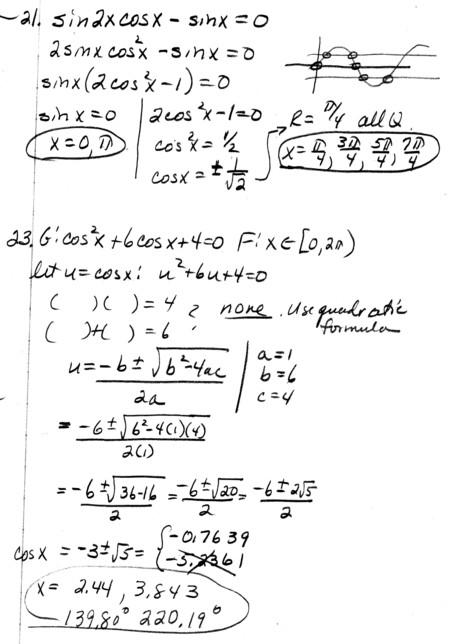 21. sin2xcosx - sinx = 0
2sinxcos²x - sinx = 0
sinx(2cos²x-1) = 0
sinx = 0 | 2cos²x-1=0
x = 0, π
cos²x = 1/2
cosx = ± 1/√2
R = π/4 all Q.
x = π/4, 3π/4, 5π/4, 7π/4
23. G: cos²x + 6cosx + 4 = 0 F: x ∈ [0, 2π)
let u = cosx: u² + 6u + 4 = 0
( )( ) = 4 ? none. Use quadratic
( )+( ) = 6 formula
u = -b ± √b²-4ac / 2a
a = 1
b = 6
c = 4
= -6 ± √6²-4(1)(4) / 2(1)
= -6 ± √36-16 / 2 = -6 ± √20 / 2 = -6 ± 2√5 / 2
cosx = -3 ± √5 = { -0.7639
-5.2361
x = 2.44, 3.843
139.80° 220.19°